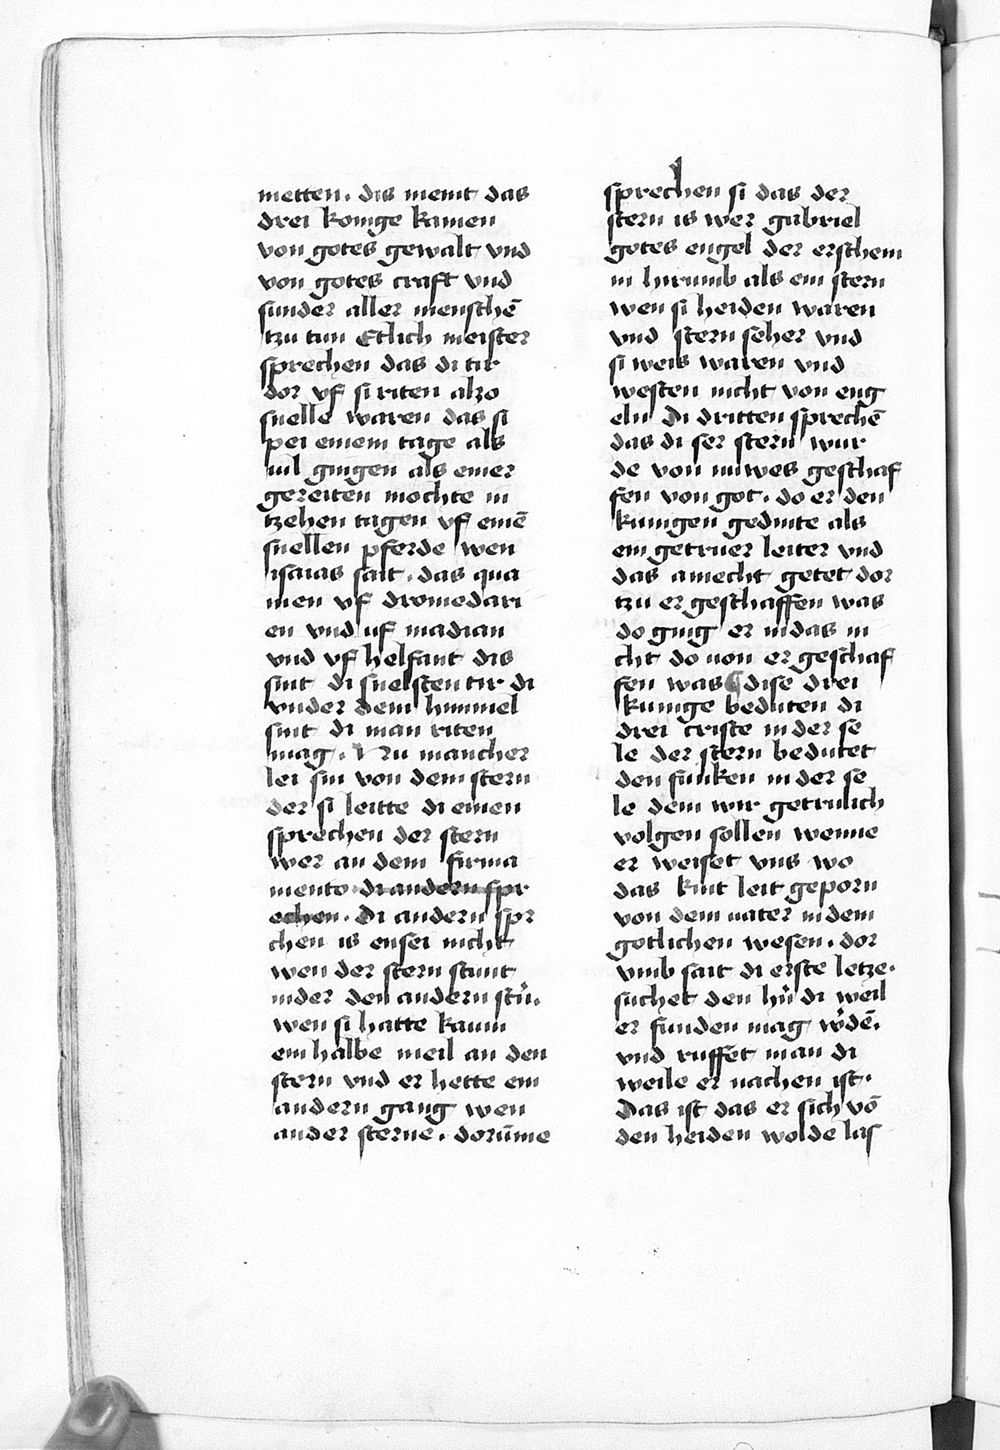 metten. dis meint das
drei konige kamen
von gotes gewalt vnd
von gotes craft vnd
sunder aller menschē
tzu tun Etlich meister
sprechen das di tir
dor vf si riten alzo
snelle waren das si
pei einem tage als
uil gingen als einer
gereiten mochte in
tzehen tagen vf einē
snellen pferde wen
isaias sait. das qua
men vf dromedari
en vnd uf madian
vnd vf helfant dis
sint di snelsten tir di
vnder dem himmel
sint di man riten
mag. Nu mancher
lei sin von dem stern
der si leitte di einen
sprechen der stern
wer an dem firma
mento di andern spr
echen. Di andern spr
chen is ensei nicht
wen der stern stunt
nider den andern stīi.
wen si hatte kaum
ein halbe meil an den
stern vnd er hette ein
andern gang wen
ander sterne. dorūme
sprechen si das der
stern is wer gabriel
gotes engel der erschein
in hirumb als ein stern
wen si heiden waren
vnd stern seher vnd
si weis waren vnd
westen nicht von eng
eln Di dritten sprechē
das di ser stern wur
de von nuwes geschaf
fen von got. do er den
kunigen gedinte als
ein getruer leiter vnd
das amecht getet dor
tzu er geschaffen was
do ging er indas ni
cht do uon er geschaf
fen was dise drei
kunige beduten di
drei criste in der se
le der stern bedutet
den funken in der se
le dem wir getrulich
volgen sollen wenne
er weiset vns wo
das kint leit geporn
von dem uater in dem
gotlichen wesen. dor
vmb sait di erste letze.
suchet den hr̄ di weil
er funden mag w'dē.
vnd ruffet man di
weile er nachen ist.
Das ist das er sich vō
den heiden wolde las